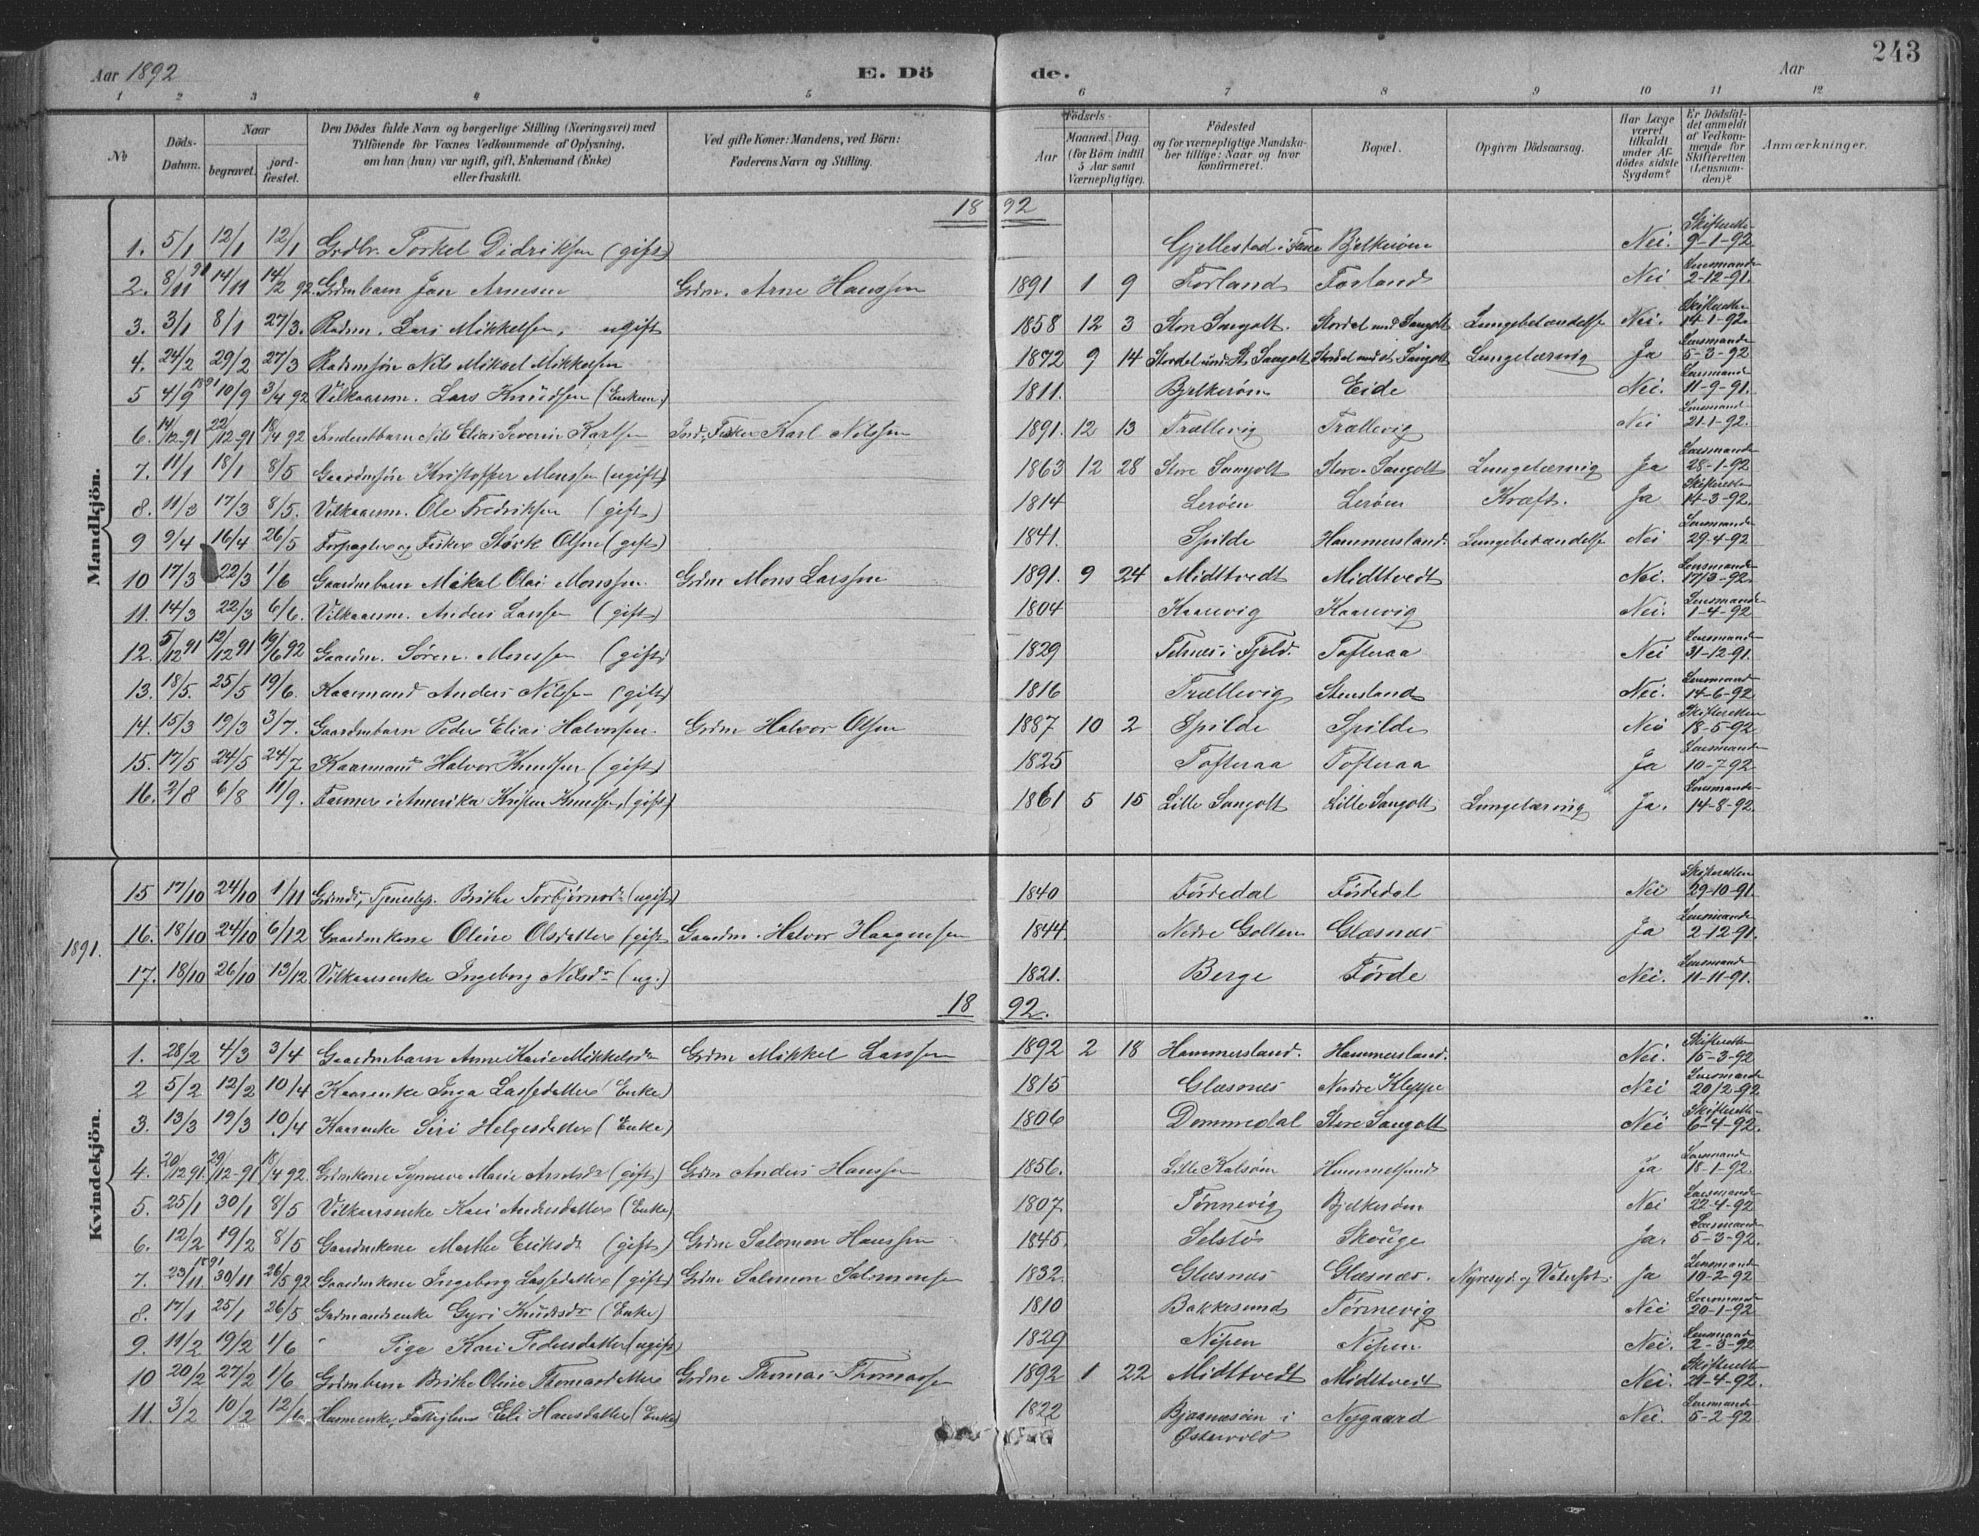 243
Aar 1892 E. Dö de. Aar
1 2 3 4 5 6 7 8 9 10 11 12
No Döds-Datum. Naar begravet. jord-fæstet. Den Dödes fulde Navn og borgerlige Stilling (Næringsvei) med Tilföiende for Voxnes Vedkommende af Oplysning, om han (hun) var ugift, gift, Enkemand (Enke) eller fraskilt. Ved gifte Koner: Mandens, ved Börn: Faderens Navn og Stilling. Födsels- Aar Maaned. Dag. (for Börn indtil 5 Aar samt Værnepligtige). Födested og for værnepligtige Mandskaber tillige: Naar og hvor konfirmeret. Bopæl. Opgiven Dödsaarsag. Har Læge været tilkaldt under Afdödes sidste Sygdom? Er Dödsfaldet anmeldt af Vedkommende for Skifteretten (Lensmanden)? Anmærkninger.
1892
Mandkjön.
1. 5/1 12/1 12/1 Grdbr. Torkel Didriksen (gift) Gjellestad i Fane Bjelkerøen Nei. Skifteretten 9-1-92
2. 8/11 91 14/11 14/2 92 Grdmbarn Jan Arnesen Grdm. Arne Hanssen 1891 1 9 Forland Forland Nei Lensmanden 2-12-91.
3. 3/1 8/1 27/3. Radm. Lars Mikkelsen, ugift 1858 12 3 Store Sangolt. Stordal und. Sangolt Lungebetændelse Nei. Skifteretten 14-1-92.
4. 24/2 29/2 27/3 Radmsøn Nils Mikael Mikkelsen 1872 9 14 Stordal und St. Sangolt Stordal und. St. Sangolt Lungetæring Ja Lensmand 5-3-92
5 4/9 1891 10/9 3/4 92 Vilkaarsm. Lars Knudsen (Enkem.) 1811. Bjelkerøen Eide Nei. Lensmand 11-9-91.
6. 14/12-91 22/12-91 18/4 92 Inderstbarn Nils Elias Severin Karlsen Ind., Fisker Karl Nilssen 1891. 12 13 Trællevig Trællevig Nei Lensmand 21-1-92.
7. 11/1 18/1 8/5 Gaardmsøn Kristoffer Monssen (ugift) 1863 12 28 Store Sangolt Store Sangolt Lungetæring Ja Lensmanden 28-1-92
8. 11/3 17/3 8/5. Vilkaarsm. Ole Fredriksen (gift) 1814 Lerøen Lerøen Kræft. Ja Skifteretten 14-3-92.
9 9/4 16/4 26/5 Forpagter og Fisker Størk Olsen (gift) 1841. Spilde Hammersland. Lungebetændelse Nei Lensmanden 29-4-92
10 17/3 22/3 1/6 Gaardmbarn Mikal Olai Monssen. Grdm Mons Larssen 1891. 9 24 Midttvedt Midttvedt Nei. Lensmanden 17/3-92.
11. 14/3 22/3 6/6. Vilkaarsm. Anders Larssen (gift) 1804 Kaarevig Kaarevig Nei. Lensmanden 1-4-92
12. 5/12 91 12/12 91 19/6 92 Gaardm. Søren Monssen (gift) 1829 Telnes i Fjeld. Tofteraa Nei Lensmand 31-12-91.
13. 18/5. 25/5 19/6. Kaarmand Anders Nilsen (gift) 1816 Trællevig Stensland Nei. Lensmand 14-6-92.
14. 15/3 19/3 3/7. Gaardmbarn Peder Elias Halvorsen. Grdm Halvor Olsen 1887 10 2 Spilde Spilde Nei Skifteretten 18-5-92
15. 17/5 24/5 24/7 Kaarmand Halvor Knudsen (gift) 1825 Tofteraa Tofteraa Ja Lensmand 10-7-92
16. 2/8 6/8 11/9. Farmer i Amerika Kristen Knudsen, (gift) 1861 5 15 Lille Sangolt Lille Sangolt Lungetæring Ja. Lensmanden 14-8-92.
1891.
15 17/10 24/10 1/11 Grdmd., Tjenestep. Brithe Torbjørnsdr (ugift) 1840 Førdedal Førdedal Nei Skifteretten 29-10-91.
16. 18/10 24/10 6/12 Gaardmkone Oline Olsdatter (gift Gaardm. Halvor Haagensen 1844 Nedre Golten Glæsnæs Ja Lensmand 2-12-91.
17. 18/10 26/10 13/12 Vilkaarsenke Ingeborg Nilsdr (ug.) 1821. Berge Førde Nei. Lensmand 11-11-91.
1892.
Kvindekjön.
1. 28/2 4/3 3/4 Gaardmbarn Anne Karie Mikkelsdr Grdm Mikkel Larssen 1892 2 18 Hammersland. Hammersland. Nei. Skifteretten 15-3-92
2 5/2 12/2 10/4 Kaarenke Inga Lassedatter (Enke) 1815 Glæsnæs Nordre Kleppe Nei Lensmanden 20/2-92
3. 13/3 19/3 10/4 Kaarenke Siri Helgesdatter (Enke) 1806 Dommedal Store Sangolt Nei Skifteretten 6-4-92.
4. 20/12 91. 29/12-91 18/4 92. Grdmkone Synneve Marie Arnetsdr (gift) Grdm Anders Hanssen 1856. Lille Kalsøen Hummelsund Ja Lensmand 18-1-92.
5. 25/1 30/1 8/5 Vilkaarsenke Kari Andersdatter (Enke) 1807. Tønnevig Bjelkerøen Nei Lensmand 22-4-92
6. 12/2 19/2 8/5 Gaardmkone Marthe Eriksdr (gift) Grdm Salomon Hanssen 1845. Selstø Skouge Ja. Lensmand 5-3-92.
7. 23/11 1891 30/11 26/5 92 Gaardmkone Ingeborg Lassedatter (gift) Grdm Salomon Salomonsen 1832. Glæsnæs Glæsnæs. Nyresyd. og Vatersot. Ja Lensmand 10-2-92
8. 17/1 25/1 26/5 Grdmandsenke Gyri Knudsdr (Enke) 1810 Bakkesund Tønnevig Nei Lensmand 20-1-92
9. 11/2 19/2 1/6 Pige Kari Pedersdatter (ugift) 1829 Nipen Nipen Nei. Lensmand 2-3-92
10 20/2 27/2 1/6 Grdmbarn Brithe Oline Thomasdatter Grdm Thomas Thomassen 1892 1 22 Midttvedt Midttvedt Nei. Skifteretten 21-4-92.
11. 3/2 10/2 12/6 Husmenke, Fattiglem Eli Hansdatter (Enke) 1822 Bjaanesøen i Østervold Nygaard Nei Lensmand 5-2-92